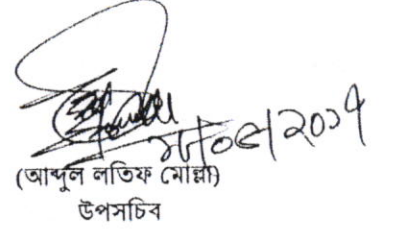 ০৫/২০১৭
(আব্দুল লতিফ মোল্লা)
উপসচিব